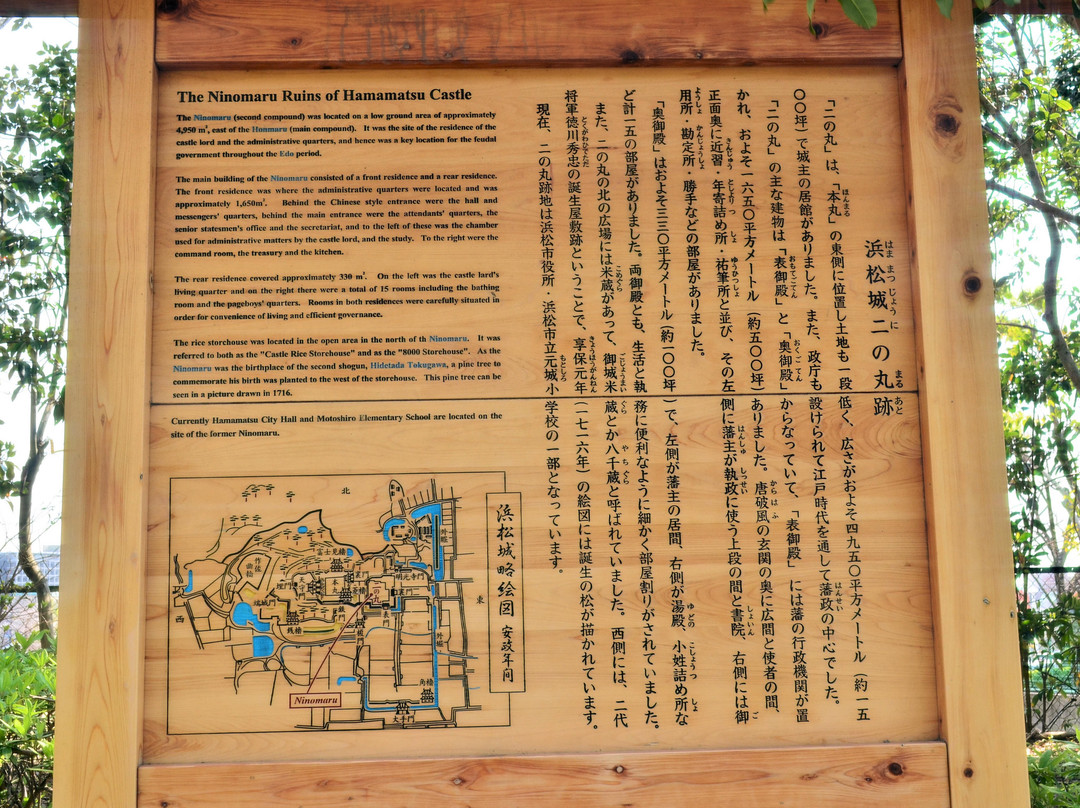 The Ninomaru Ruins of Hamamatsu Castle
The Ninomaru (second compound) was located on a low ground area of approximately
4,950 m², east of the Honmaru (main compound). It was the site of the residence of the
castle lord and the administrative quarters, and hence was a key location for the feudal
government throughout the Edo period.
The main building of the Ninomaru consisted of a front residence and a rear residence.
The front residence was where the administrative quarters were located and was
approximately 1,650m². Behind the Chinese style entrance were the hall and
messengers' quarters, behind the main entrance were the attendants' quarters, the
senior statesmen's office and the secretariat, and to the left of these was the chamber
used for administrative matters by the castle lord, and the study. To the right were the
command room, the treasury and the kitchen.
The rear residence covered approximately 330 m². On the left was the castle lard's
living quarter and on the right there were a total of 15 rooms including the bathing
room and the pageboys' quarters. Rooms in both residences were carefully situated in
order for convenience of living and efficient governance.
The rice storehouse was located in the open area in the north of th Ninomaru. It was
referred to both as the "Castle Rice Storehouse" and as the "8000 Storehouse". As the
Ninomaru was the birthplace of the second shogun, Hidetada Tokugawa, a pine tree to
commemorate his birth was planted to the west of the storehouse. This pine tree can be
seen in a picture drawn in 1716.
Currently Hamamatsu City Hall and Motoshiro Elementary School are located on the
site of the former Ninomaru.
浜松城二の丸跡
「二の丸」は、「本丸」の東側に位置し土地も一段低く、広さがおよそ四九五〇平方メートル（約一五
〇〇坪）で城主の居館がありました。また、政庁も設けられて江戸時代を通して藩政の中心でした。
「二の丸」の主な建物は「表御殿」と「奥御殿」からなっていて、「表御殿」には藩の行政機関が置
かれ、およそ一六五〇平方メートル（約五〇〇坪）ありました。唐破風の玄関の奥に広間と使者の間、
正面奥に近習・年寄詰め所・祐筆所と並び、その左側に藩主が執政に使う上段の間と書院、右側には御
用所・勘定所・勝手などの部屋がありました。
「奥御殿」はおよそ三三〇平方メートル（約一〇〇坪）で、左側が藩主の居間、右側が湯殿、小姓詰め所な
ど計一五の部屋がありました。両御殿とも、生活と執務に便利なように細かく部屋割りがされていました。
また、二の丸の北の広場には米蔵があって、御城米蔵とか八千蔵と呼ばれていました。西側には、二代
将軍徳川秀忠の誕生屋敷跡ということで、享保元年（一七一六年）の絵図には誕生の松が描かれています。
現在、二の丸跡地は浜松市役所・浜松市立元城小学校の一部となっています。
浜松城略絵図 安政年間
北
東
西
富士見櫓
明光寺門
外堀
外堀
角櫓
大手門
Ninomaru